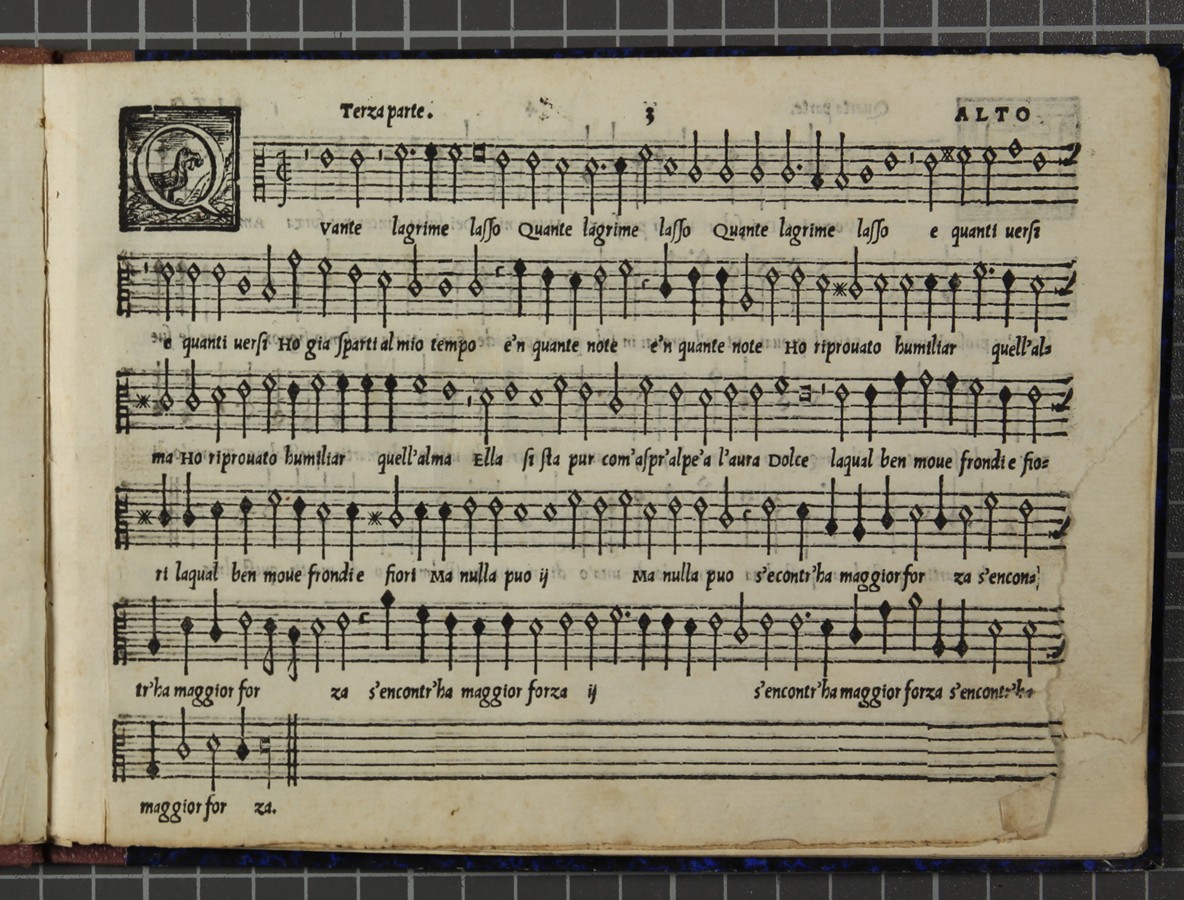 Terza parte. 3 ALTO
Quante lagrime lasso Quante lagrime lasso Quante lagrime lasso e quanti uersi
e quanti uersi Ho gia sparti al mio tempo e'n quante note e'n quante note Ho riprouato humiliar quell'al=
ma Ho riprouato humiliar quell'alma Ella si sta pur com'aspr'alpe'a l'aura Dolce laqual ben moue frondi e fio=
ri laqual ben moue frondi e fiori Ma nulla puo ij Ma nulla puo s'econtr'ha maggior for za s'encon=
tr'ha maggior for za s'encontr'ha maggior forza ij s'encontr'ha maggior forza s'encontr'ha
maggior for za.